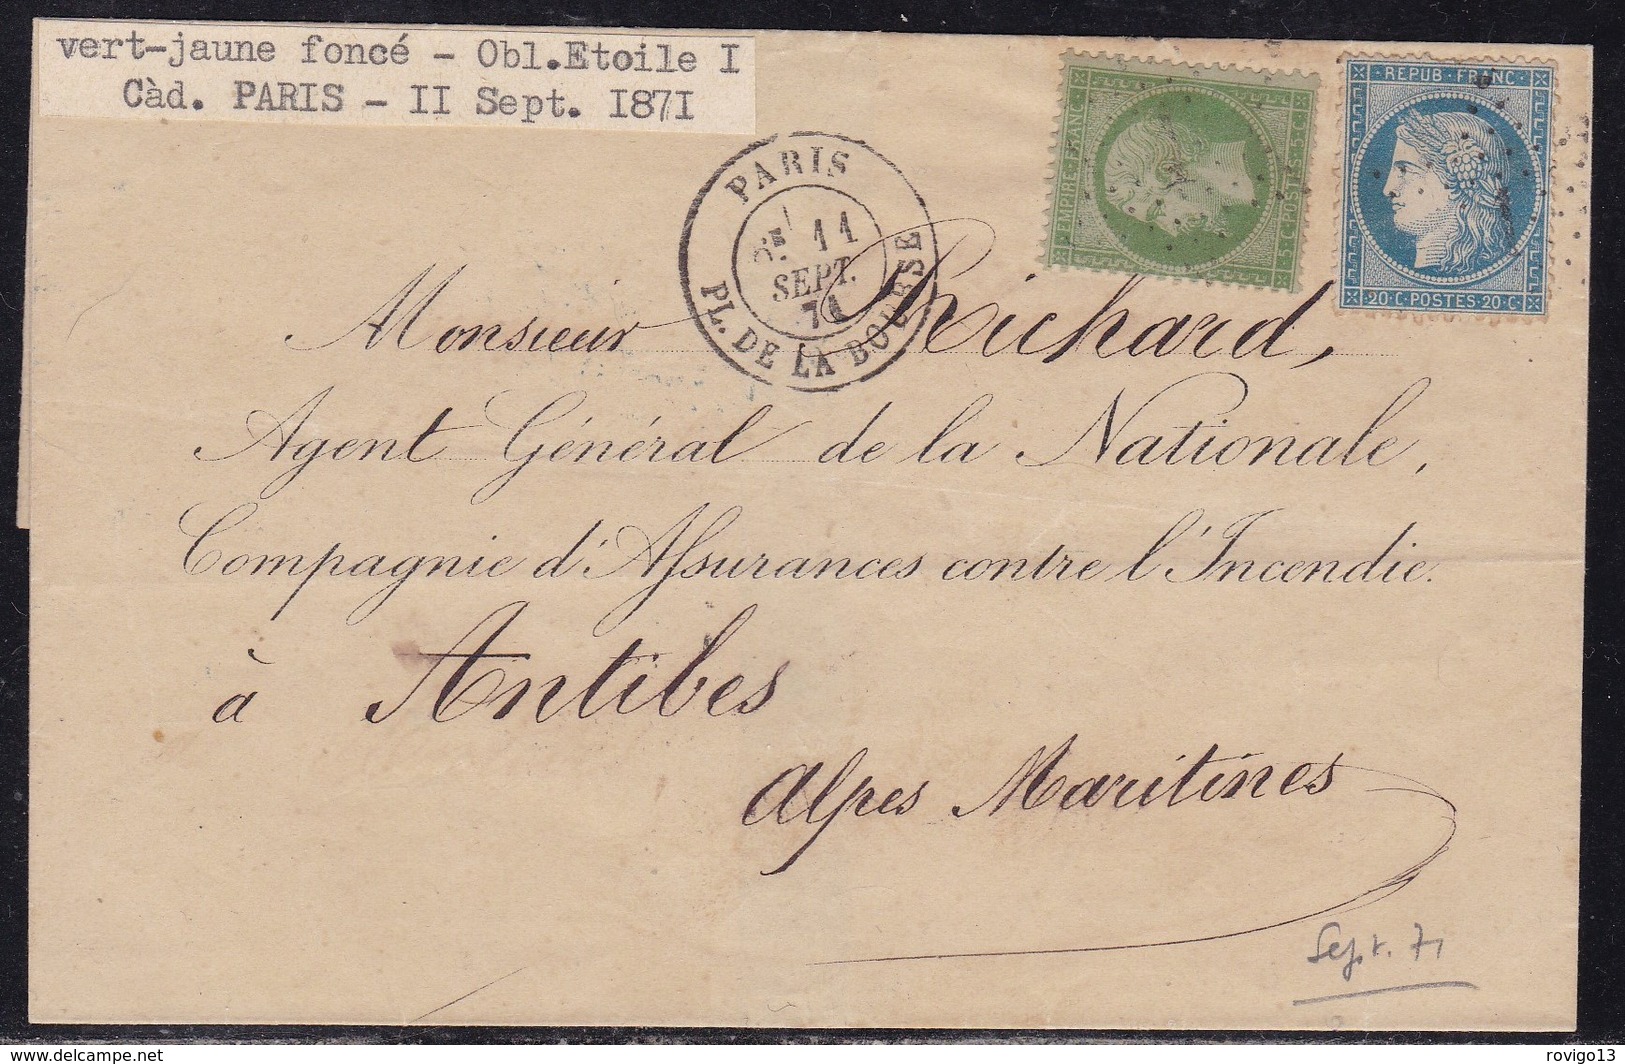 vert-jaune foncé - Obl.Etoile I
Càd. PARIS - II Sept. I87I
EMPIRE FRANC
5 C POSTES 5 C
REPUB FRANC
20 C POSTES 20 C
PARIS
11
SEPT.
71
PL. DE LA BOURSE
Monsieur Richard,
Agent Général de la Nationale,
Compagnie d'Assurances contre l'Incendie.
à Antibes
Alpes Maritimes
Sept. 71
delcampe.net
rovigo13